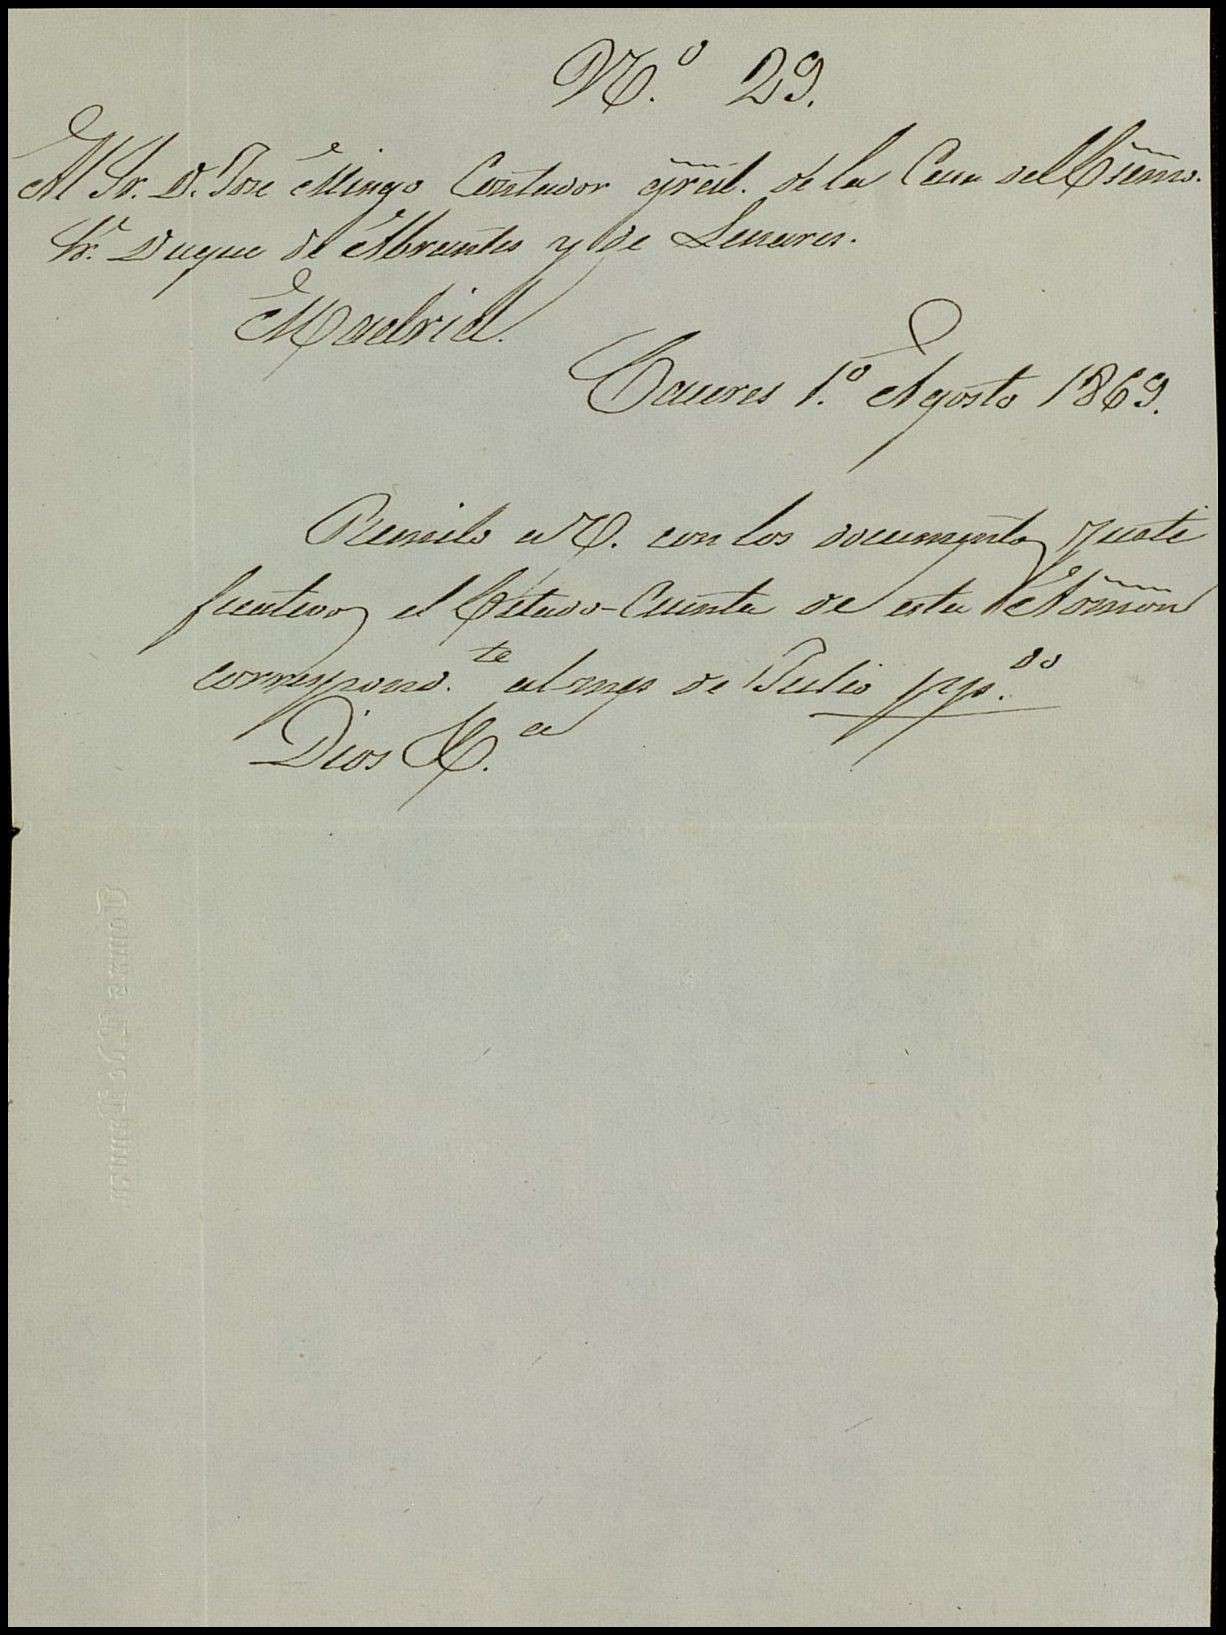 N.º 29.
Al Sr. D. Jose Mingo Contador gral. de la Casa del Excmo.
Sr. Duque de Abrantes y de Linares.
Madrid.
Caceres 1.º Agosto 1869.
Remito a V. con los documentos justi
ficativos el Estado-Cuenta de esta Admon
correspond.te al mes de Julio pp.do
Dios &.a